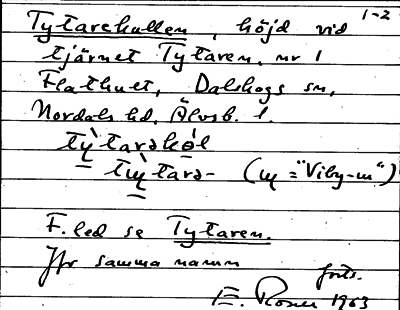 1-2
Tytarekullen, höjd vid
tjärnet Tytaren, nr 1
Flathult, Dalskogs sn,
Nordals hd. Älvsb. l.
tỳtarəkəl
tɰ̀tarə- (ɰ = "Viby-ɰ")
F.led se Tytaren.
Jfr samma namn
forts.
E. Rosen 1963